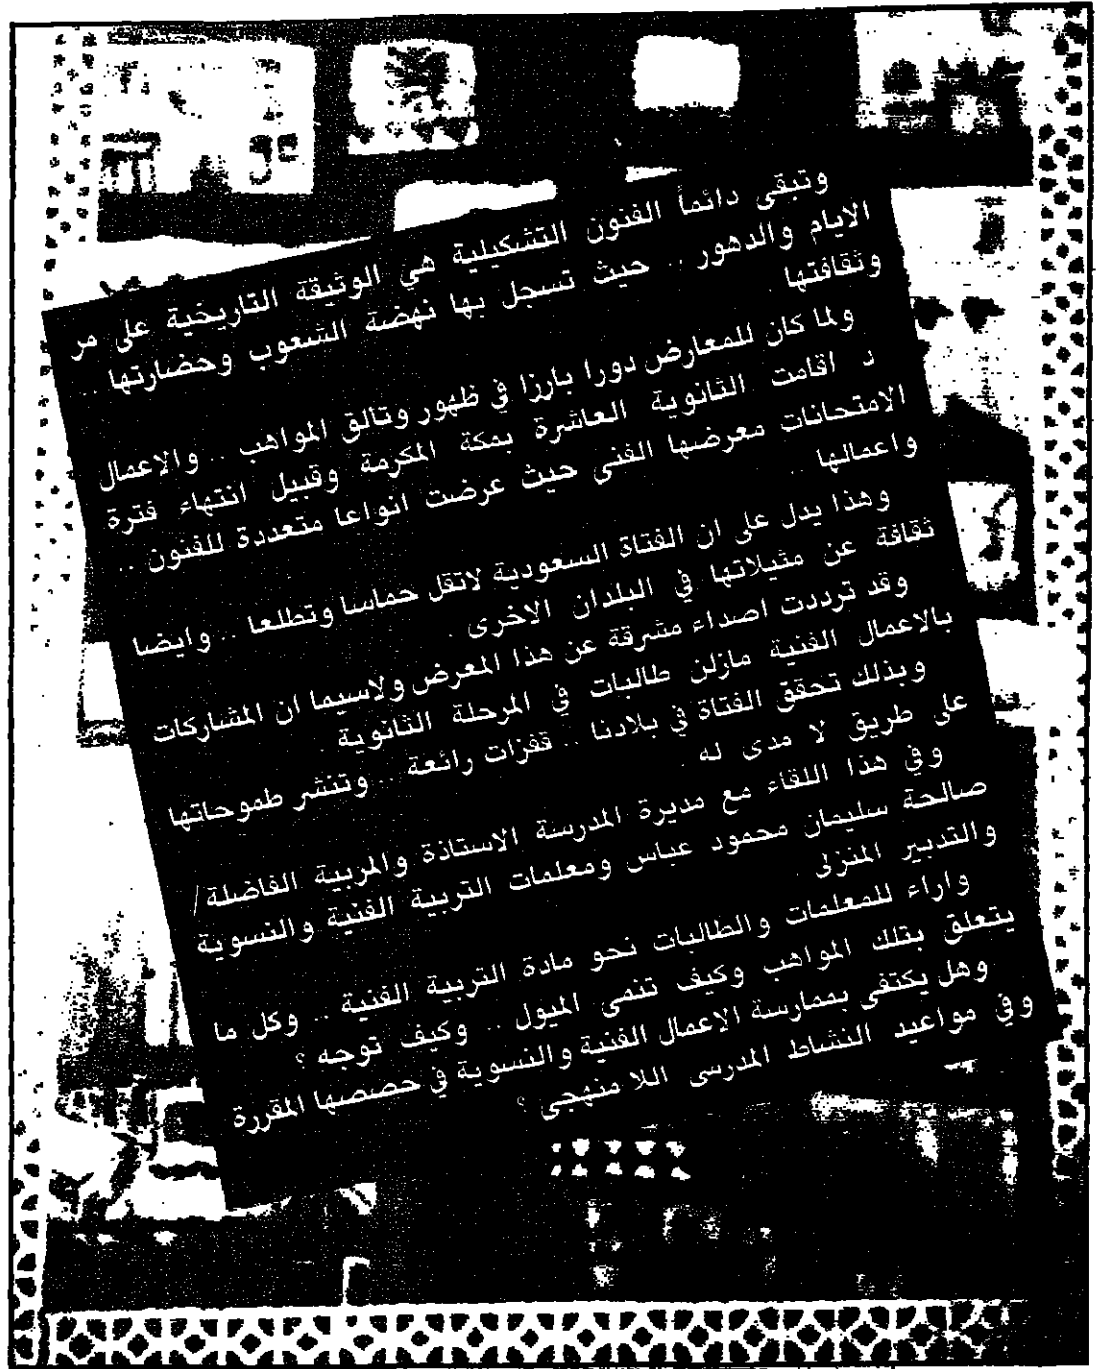 وتبقى دائماً الفنون التشكيلية هي الوثيقة التاريخية على مر
الايام والدهور .. حيث تسجل بها نهضة الشعوب وحضارتها ..
وثقافتها .
ولما كان للمعارض دورا بارزا في ظهور وتالق المواهب .. والاعمال
د اقامت الثانوية العاشرة بمكة المكرمة وقبيل انتهاء فترة
الامتحانات معرضها الفنى حيث عرضت انواعا متعددة للفنون ..
واعمالها ..
وهذا يدل على ان الفتاة السعودية لاتقل حماسا وتطلعا .. وايضا
ثقافة عن مثيلاتها في البلدان الاخرى .
وقد ترددت اصداء مشرقة عن هذا المعرض ولاسيما ان المشاركات
بالاعمال الفنية مازلن طالبات في المرحلة الثانوية .
وبذلك تحقق الفتاة في بلادنا .. قفزات رائعة .. وتنشر طموحاتها
على طريق لا مدى له .
وفي هذا اللقاء مع مديرة المدرسة الاستاذة والمربية الفاضلة/
صالحة سليمان محمود عباس ومعلمات التربية الفنية والنسوية
والتدبير المنزلى .
واراء للمعلمات والطالبات نحو مادة التربية الفنية .. وكل ما
يتعلق بتلك المواهب وكيف تنمى الميول .. وكيف توجه ؟
وهل يكتفى بممارسة الاعمال الفنية والنسوية في حصصها المقررة
وفي مواعيد النشاط المدرسى اللا منهجى ؟